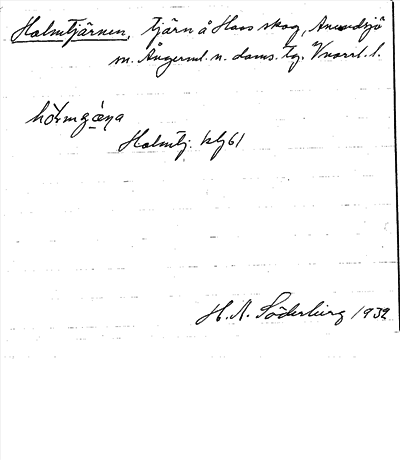 Holmtjärnen, tjärn å Haas skog, Anundsjö
sn. Ångerml. n. doms. tg. Vnorrl. l.
Holmtj. blg61
H. A. Söderberg 1932